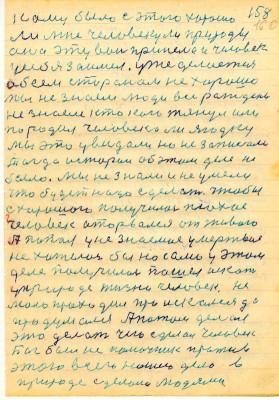 158
Кому было с этого хорошо
ли мне человеку ли природу
она эту вои принела и человек
уебя занимел. Уже делается
обсем сторонам не хорошо
мы не знали люди все рождены
не знаем кто кого тянул или
породил человек или ягодку
мы это увидали но не записали
тогда истории об этом деле не
было. Мы не знали и не умели
что будет надо сделать чтобы
с хорошого получилось плохое
человек оторвался от живого
А попал у не знаемое умертвое
не хотелось бы но само у этом
деле получилось пошел искать
у природе жизни человек, не
мало проходил про искался да
продумался А потом делал
это делать чего сделал человек
Бог был не помощник против
этого всего нашло дело в
природе сделано людями